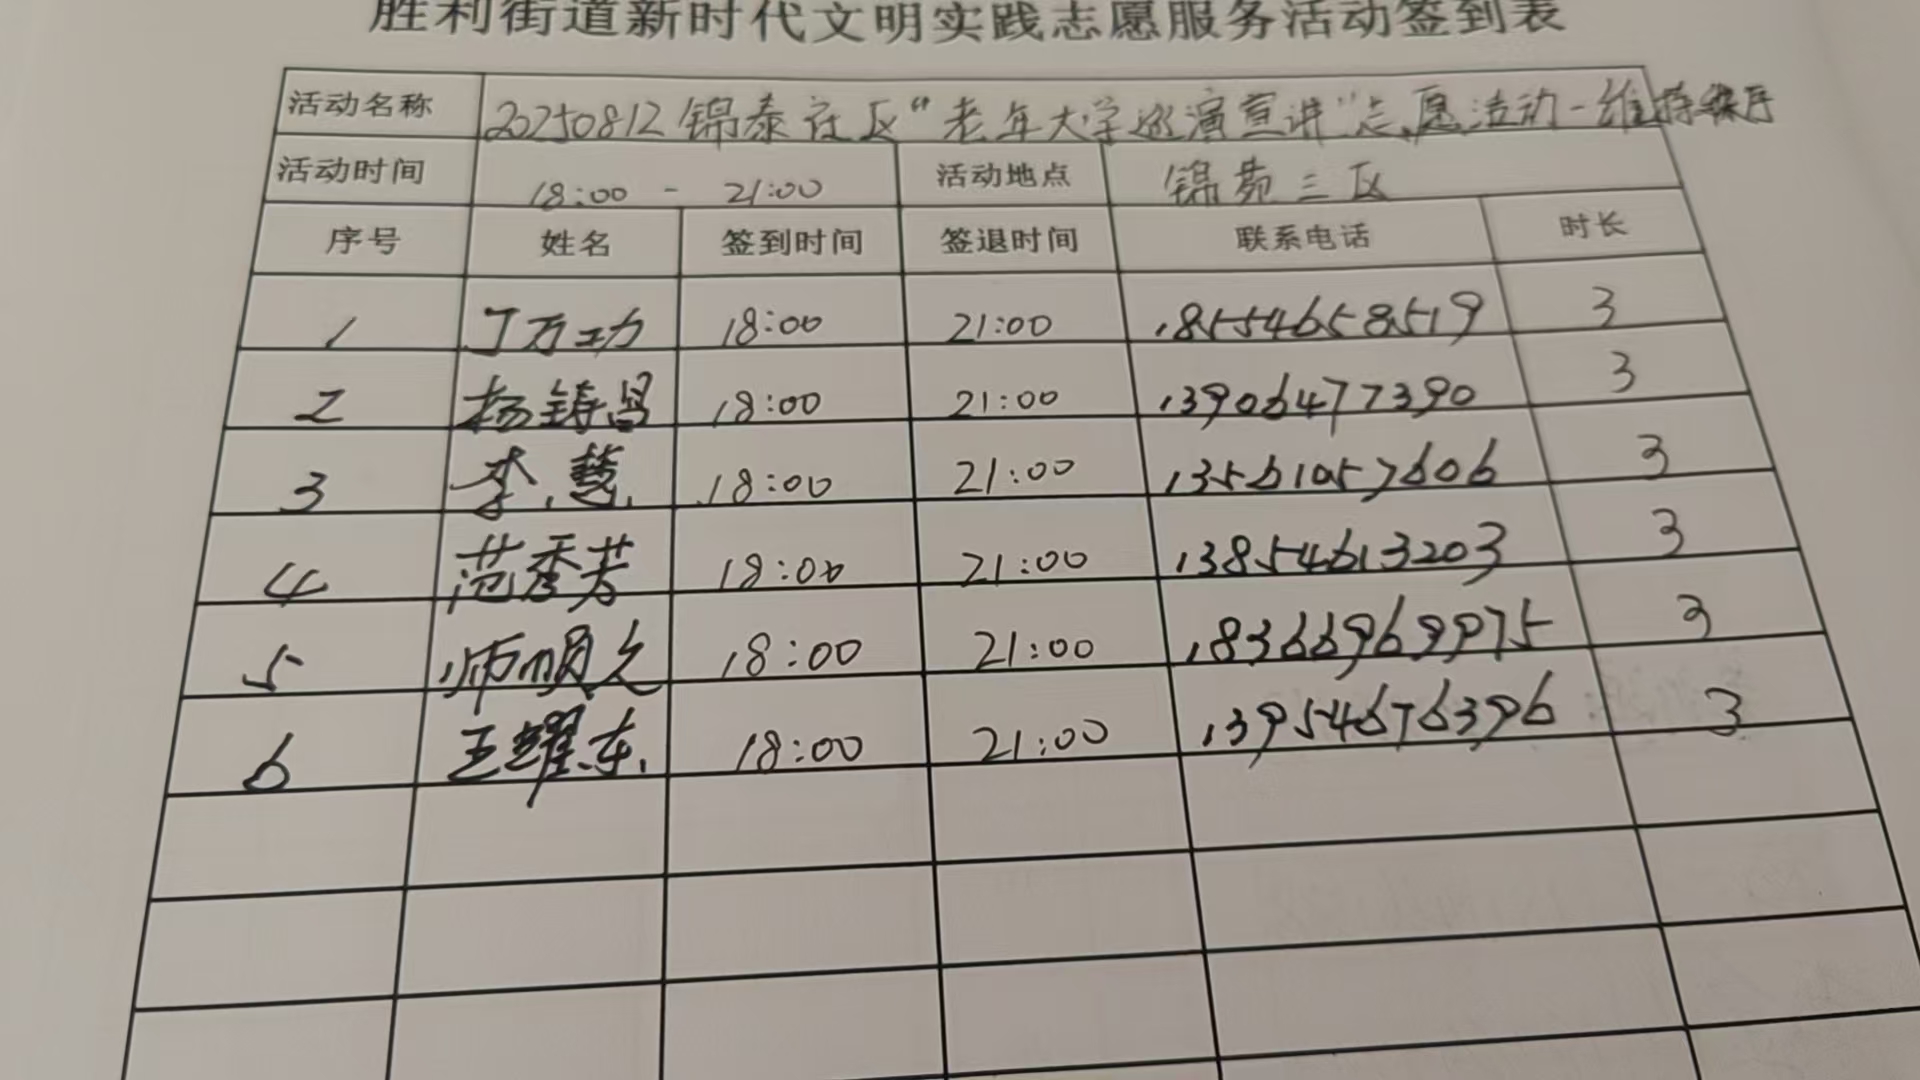 胜利街道新时代文明实践志愿服务活动签到表
活动名称 20250812锦泰社区“老年大学巡演宣讲”志愿活动-维持秩序
活动时间 18:00 - 21:00 活动地点 锦苑三区
序号 姓名 签到时间 签退时间 联系电话 时长
1 丁万功 18:00 21:00 18554658519 3
2 杨铸昌 18:00 21:00 13906477390 3
3 李慧 18:00 21:00 13561057606 3
4 范秀芳 18:00 21:00 13854613203 3
5 师明久 18:00 21:00 18366969975 3
6 王耀东 18:00 21:00 13954676396 3